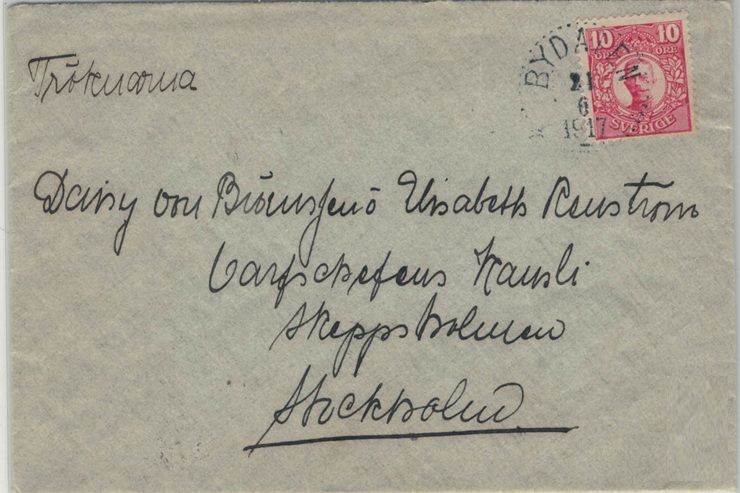 Fröknarna
BYDALEN
21
6
1917
10 10
ÖRE ÖRE
SVERIGE
Daisy von Elisabeth Renström
Varfschefens Kansli
Skeppsholmen
Stockholm